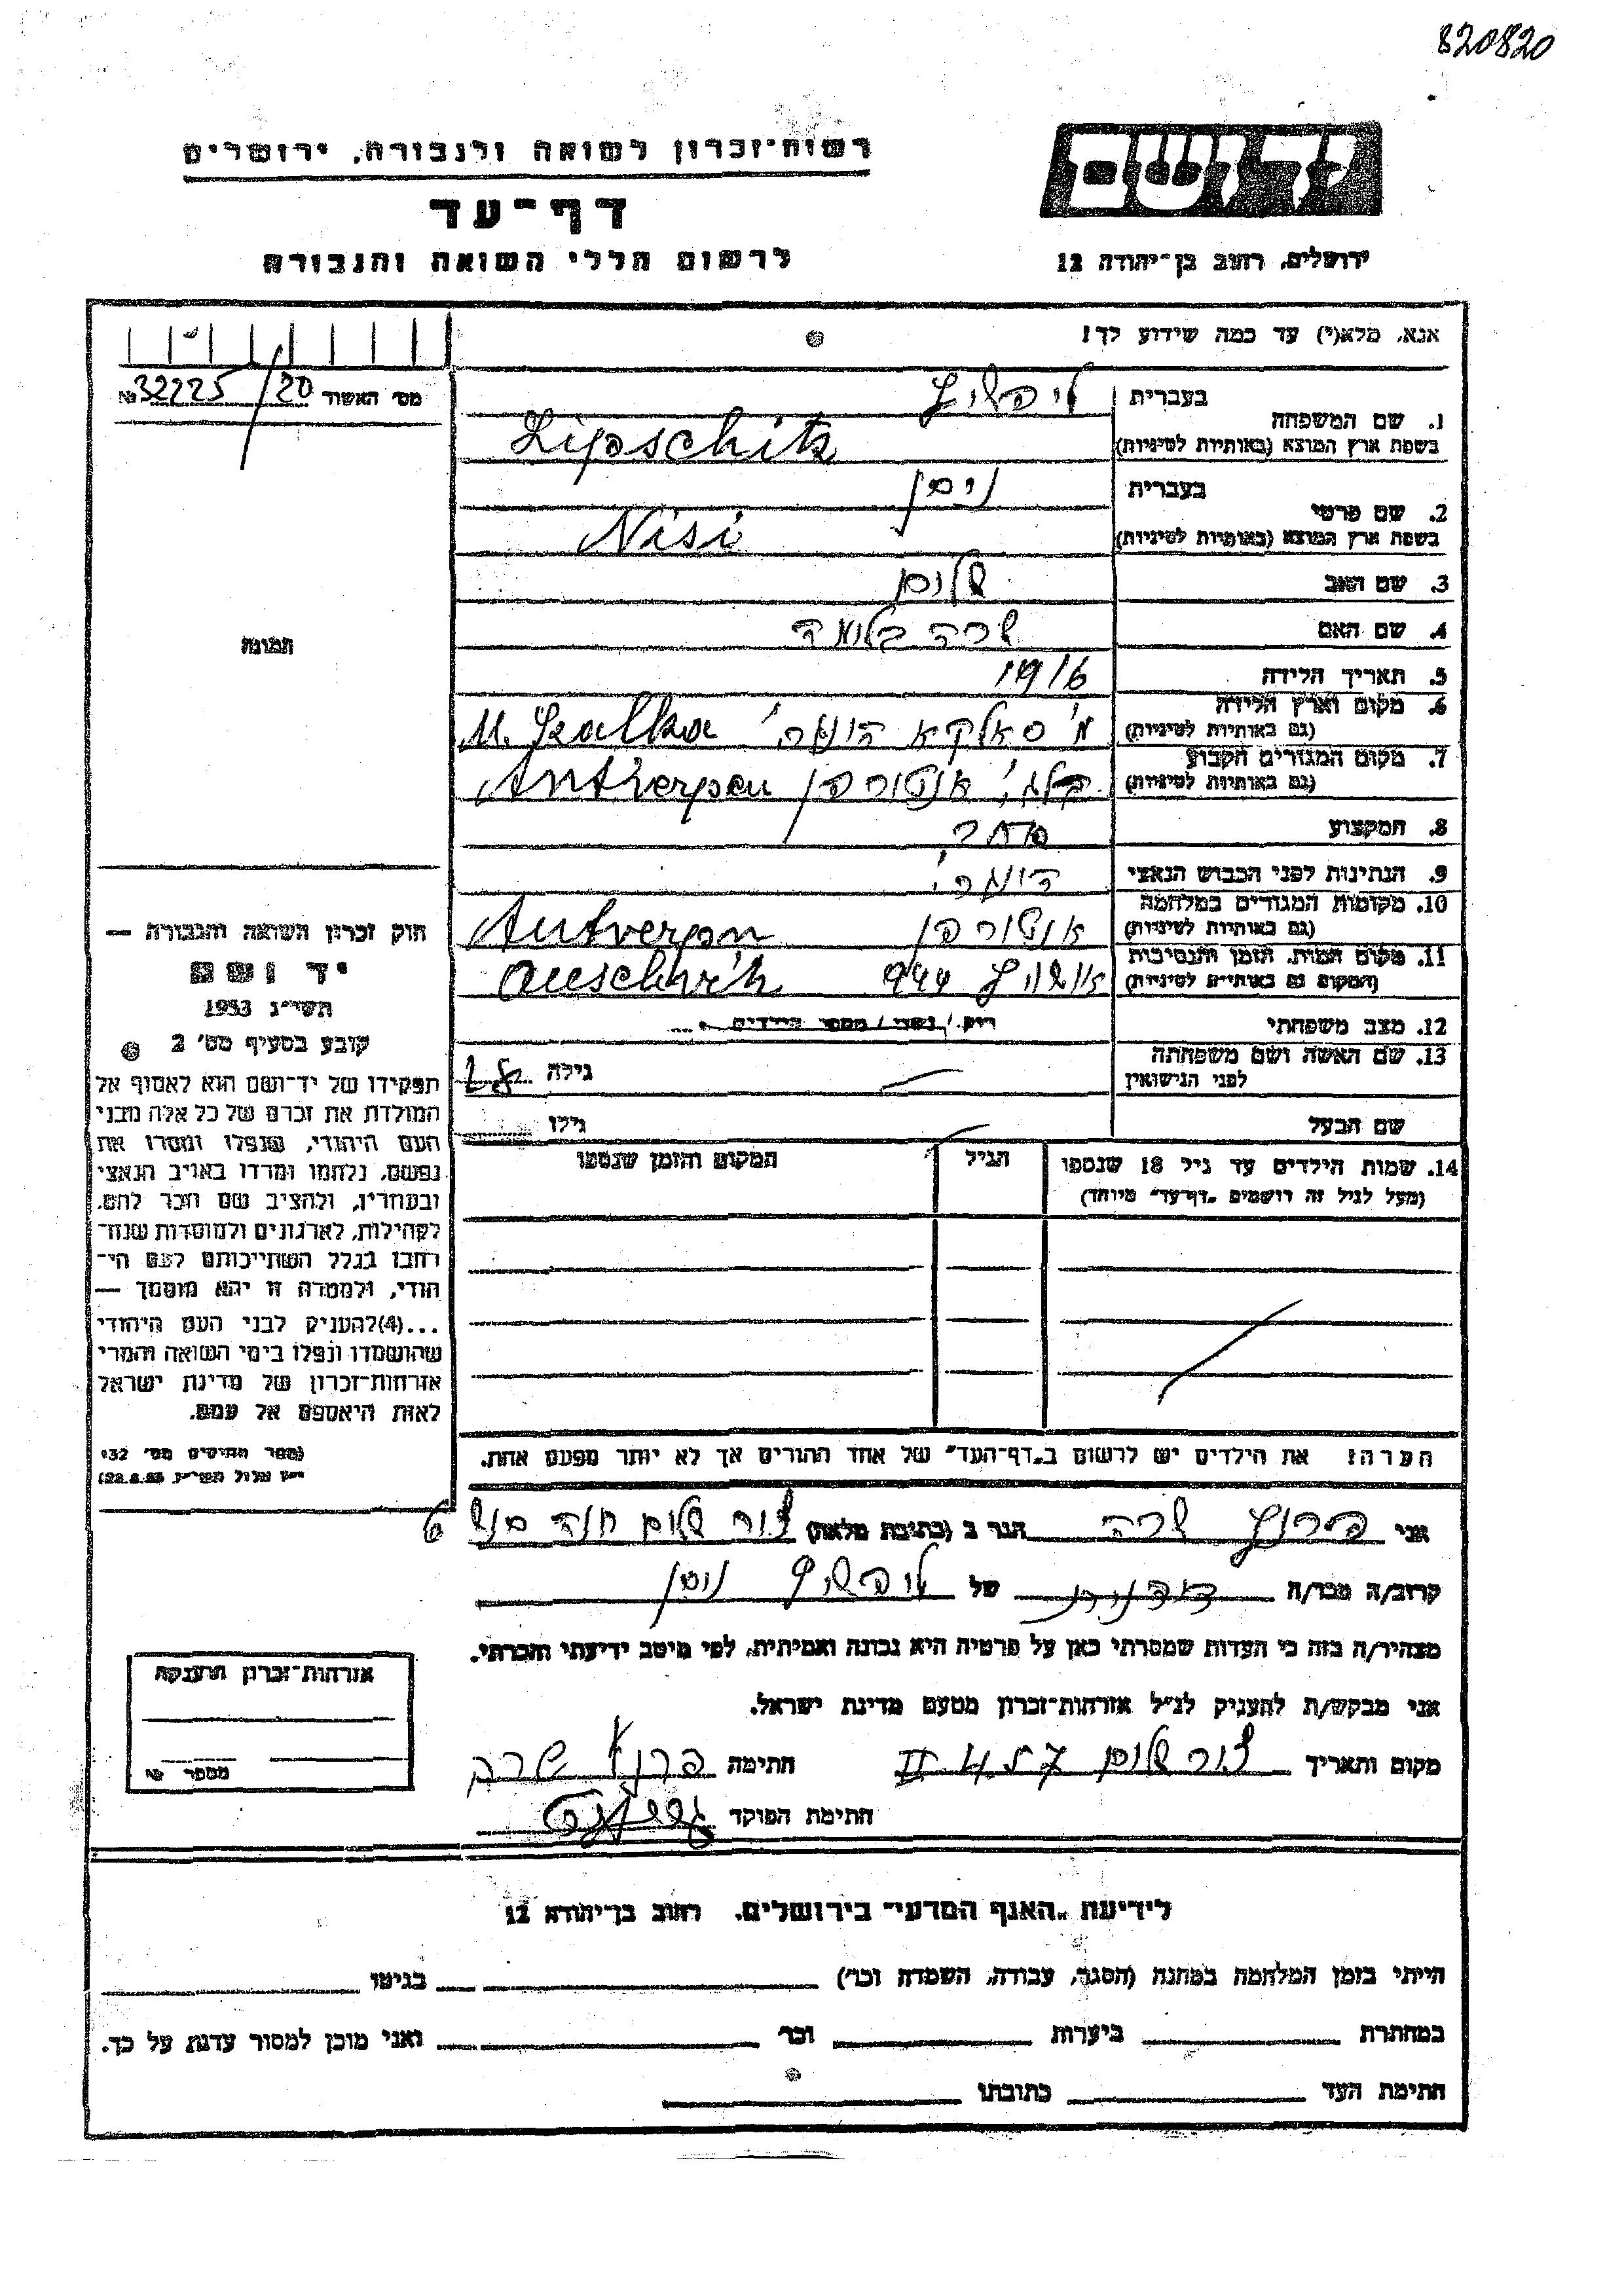 820820
יד ושם
רשות-זכרון לשואה ולגבורה, ירושלים
דף-עד
לרשום חללי השואה והגבורה
ירושלים, רחוב בן-יהודה 12
אנא, מלא(י) עד כמה שידוע לך!
מס׳ האשור № 32225/20
1. שם המשפחה
בעברית ליפשיץ
בשפת ארץ המוצא (באותיות לטיניות) Lipschitz
2. שם פרטי
בעברית ניסן
בשפת ארץ המוצא (באותיות לטיניות) Nisi
3. שם האב שלום
4. שם האם שרה בלומה
5. תאריך הלידה 1916
6. מקום וארץ הלידה
(גם באותיות לטיניות) מ׳ סאלקא הונגר׳ M. Szalka
7. מקום המגורים הקבוע
(גם באותיות לטיניות) בלגי׳ אנטורפן Antwerpen
8. המקצוע סוחר
9. הנתינות לפני הכבוש הנאצי הונגרי
10. מקומות המגורים במלחמה
(גם באותיות לטיניות) אנטורפן Antverpn
11. מקום המות, הזמן והנסיבות
(המקום גם באותיות לטיניות) אושויץ 944 Auschwitz
12. מצב משפחתי רוק / נשוי / מספר הילדים
13. שם האשה ושם משפחתה
לפני הנישואין
גילה 28
שם הבעל
גילו
14. שמות הילדים עד גיל 18 שנספו
(מעל לגיל זה רושמים „דף-עד״ מיוחד)
הגיל
המקום והזמן שנספו
הערה! את הילדים יש לרשום ב„דף-העד״ של אחד ההורים אך לא יותר מפעם אחת.
תמונה
חוק זכרון השואה והגבורה —
יד ושם
תשי״ג 1953
קובע בסעיף מס׳ 2
תפקידו של יד-ושם הוא לאסוף אל
המולדת את זכרם של כל אלה מבני
העם היהודי, שנפלו ומסרו את
נפשם, נלחמו ומרדו באויב הנאצי
ובעוזריו, ולהציב שם וזכר להם,
לקהילות, לארגונים ולמוסדות שנח־
רבו בגלל השתייכותם לעם הי־
הודי, ולמטרה זו יהא מוסמך —
...(4)להעניק לבני העם היהודי
שהושמדו ונפלו בימי השואה והמרי
אזרחות-זכרון של מדינת ישראל
לאות היאספם אל עמם.
(ספר החוקים מס׳ 132
אני שרה הגר ב (כתובת מלאה) צור שלום חנה סנש 6
קרוב/ה מכר/ה של ליפשיץ ניסן
מצהיר/ה בזה כי העדות שמסרתי כאן על פרטיה היא נכונה ואמיתית, לפי מיטב ידיעתי והכרתי.
אני מבקש/ת להעניק לנ״ל אזרחות-זכרון מטעם מדינת ישראל.
מקום ותאריך צור שלום חתימה שרה
חתימת הפוקד
אזרחות-זכרון הוענקה
מספר №
לידיעת „האגף המדעי״ בירושלים, רחוב בן-יהודה 12
הייתי בזמן המלחמה במחנה (הסגר, עבודה, השמדה וכו׳) בגיטו
במחתרת ביערות וכו׳ ואני מוכן למסור עדות על כך.
חתימת העד כתובתו